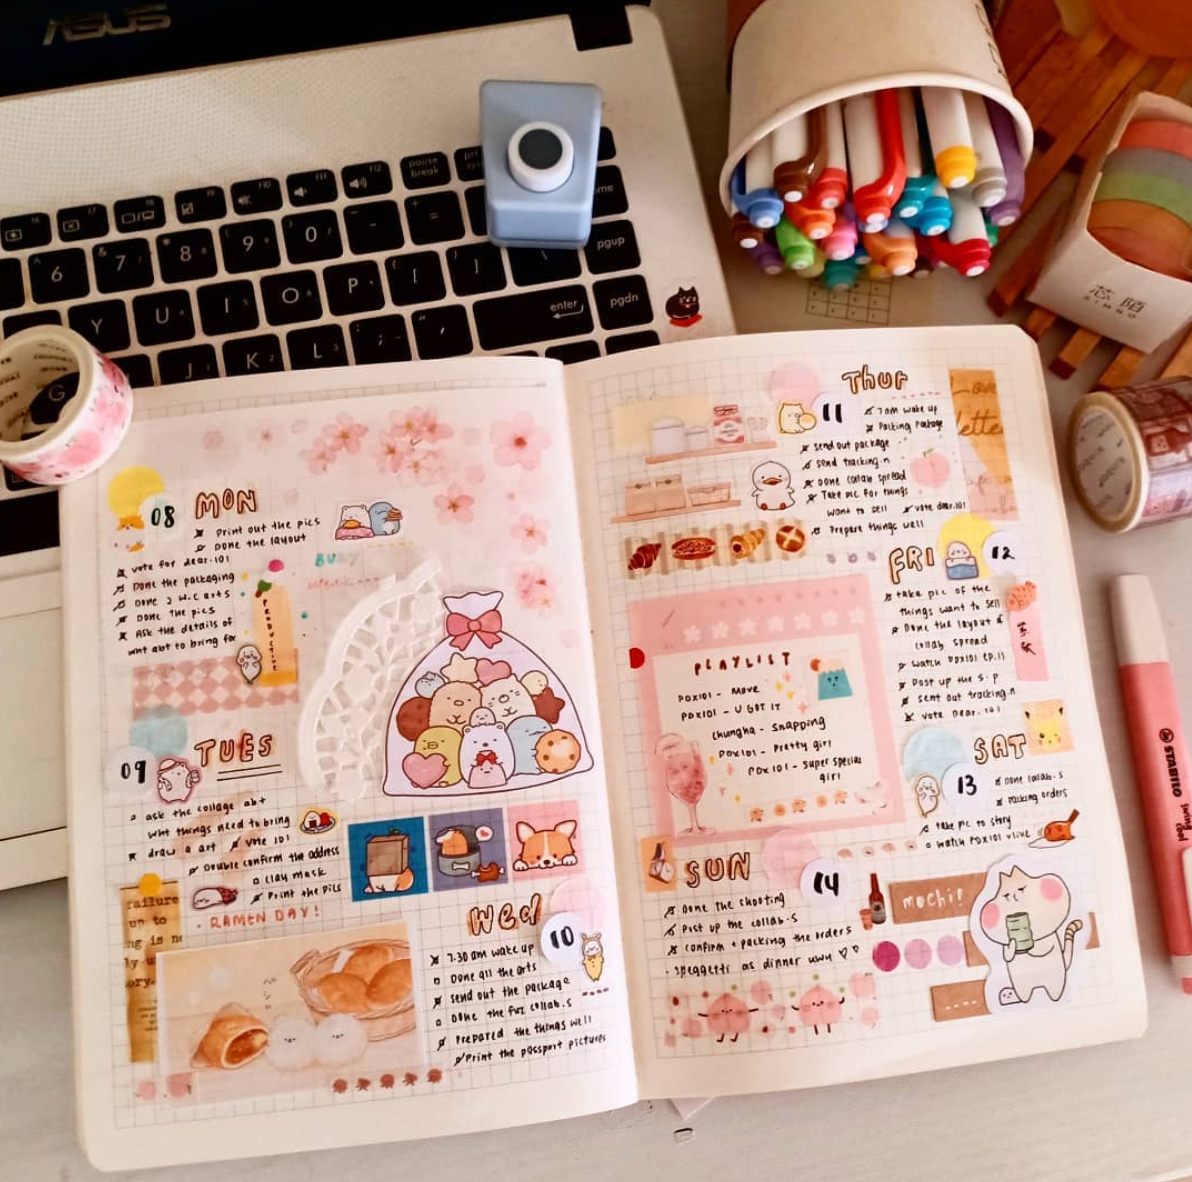 ASUS
pause break
6
7
8
9
0
-
=
pgup
Y
U
I
O
P
[
]
\
enter
pgdn
J
K
L
;
G
芯陌
08 MON
Print out the pics
Done the layout
vote for dear.101
Done the packaging
Done 2 W.C arts
Done the pics
Ask the details of
wht abt to bring for
BUSY
PRODUCTIVE
09 TUES
ask the collage abt
wht things need to bring
draw a art
vote 101
Double confirm the address
clay mask
Print the pics
RAMEN DAY!
failure
un to
ng is
Wed 10
7:30 am wake up
Done all the arts
Send out the package
Done the fuz collab.s
Prepared the things well
Print the passport pictures
Thur 11
7am wake up
Packing Package
send out package
send tracking.n
Done collab spread
Take pic for things
want to sell
vote dear.101
Prepare things well
Love
FRI 12
take pic of the
things want to sell
Done the layout &
collab spread
watch PDX101 ep.11
Post up the s.p
sent out tracking.n
vote Dear.101
PLAYLIST
PDX101 - Move
PDX101 - U GOT IT
Chungha - Snapping
PDX101 - Pretty girl
PDX101 - Super special
girl
SAT 13
Done collab.s
Packing orders
take pic to story
watch PDX101 vlive
SUN 14
Done the shooting
Post up the collab.s
confirm + packing the orders
speggetti as dinner uwu ♡ ♡
mochi!
STABILO